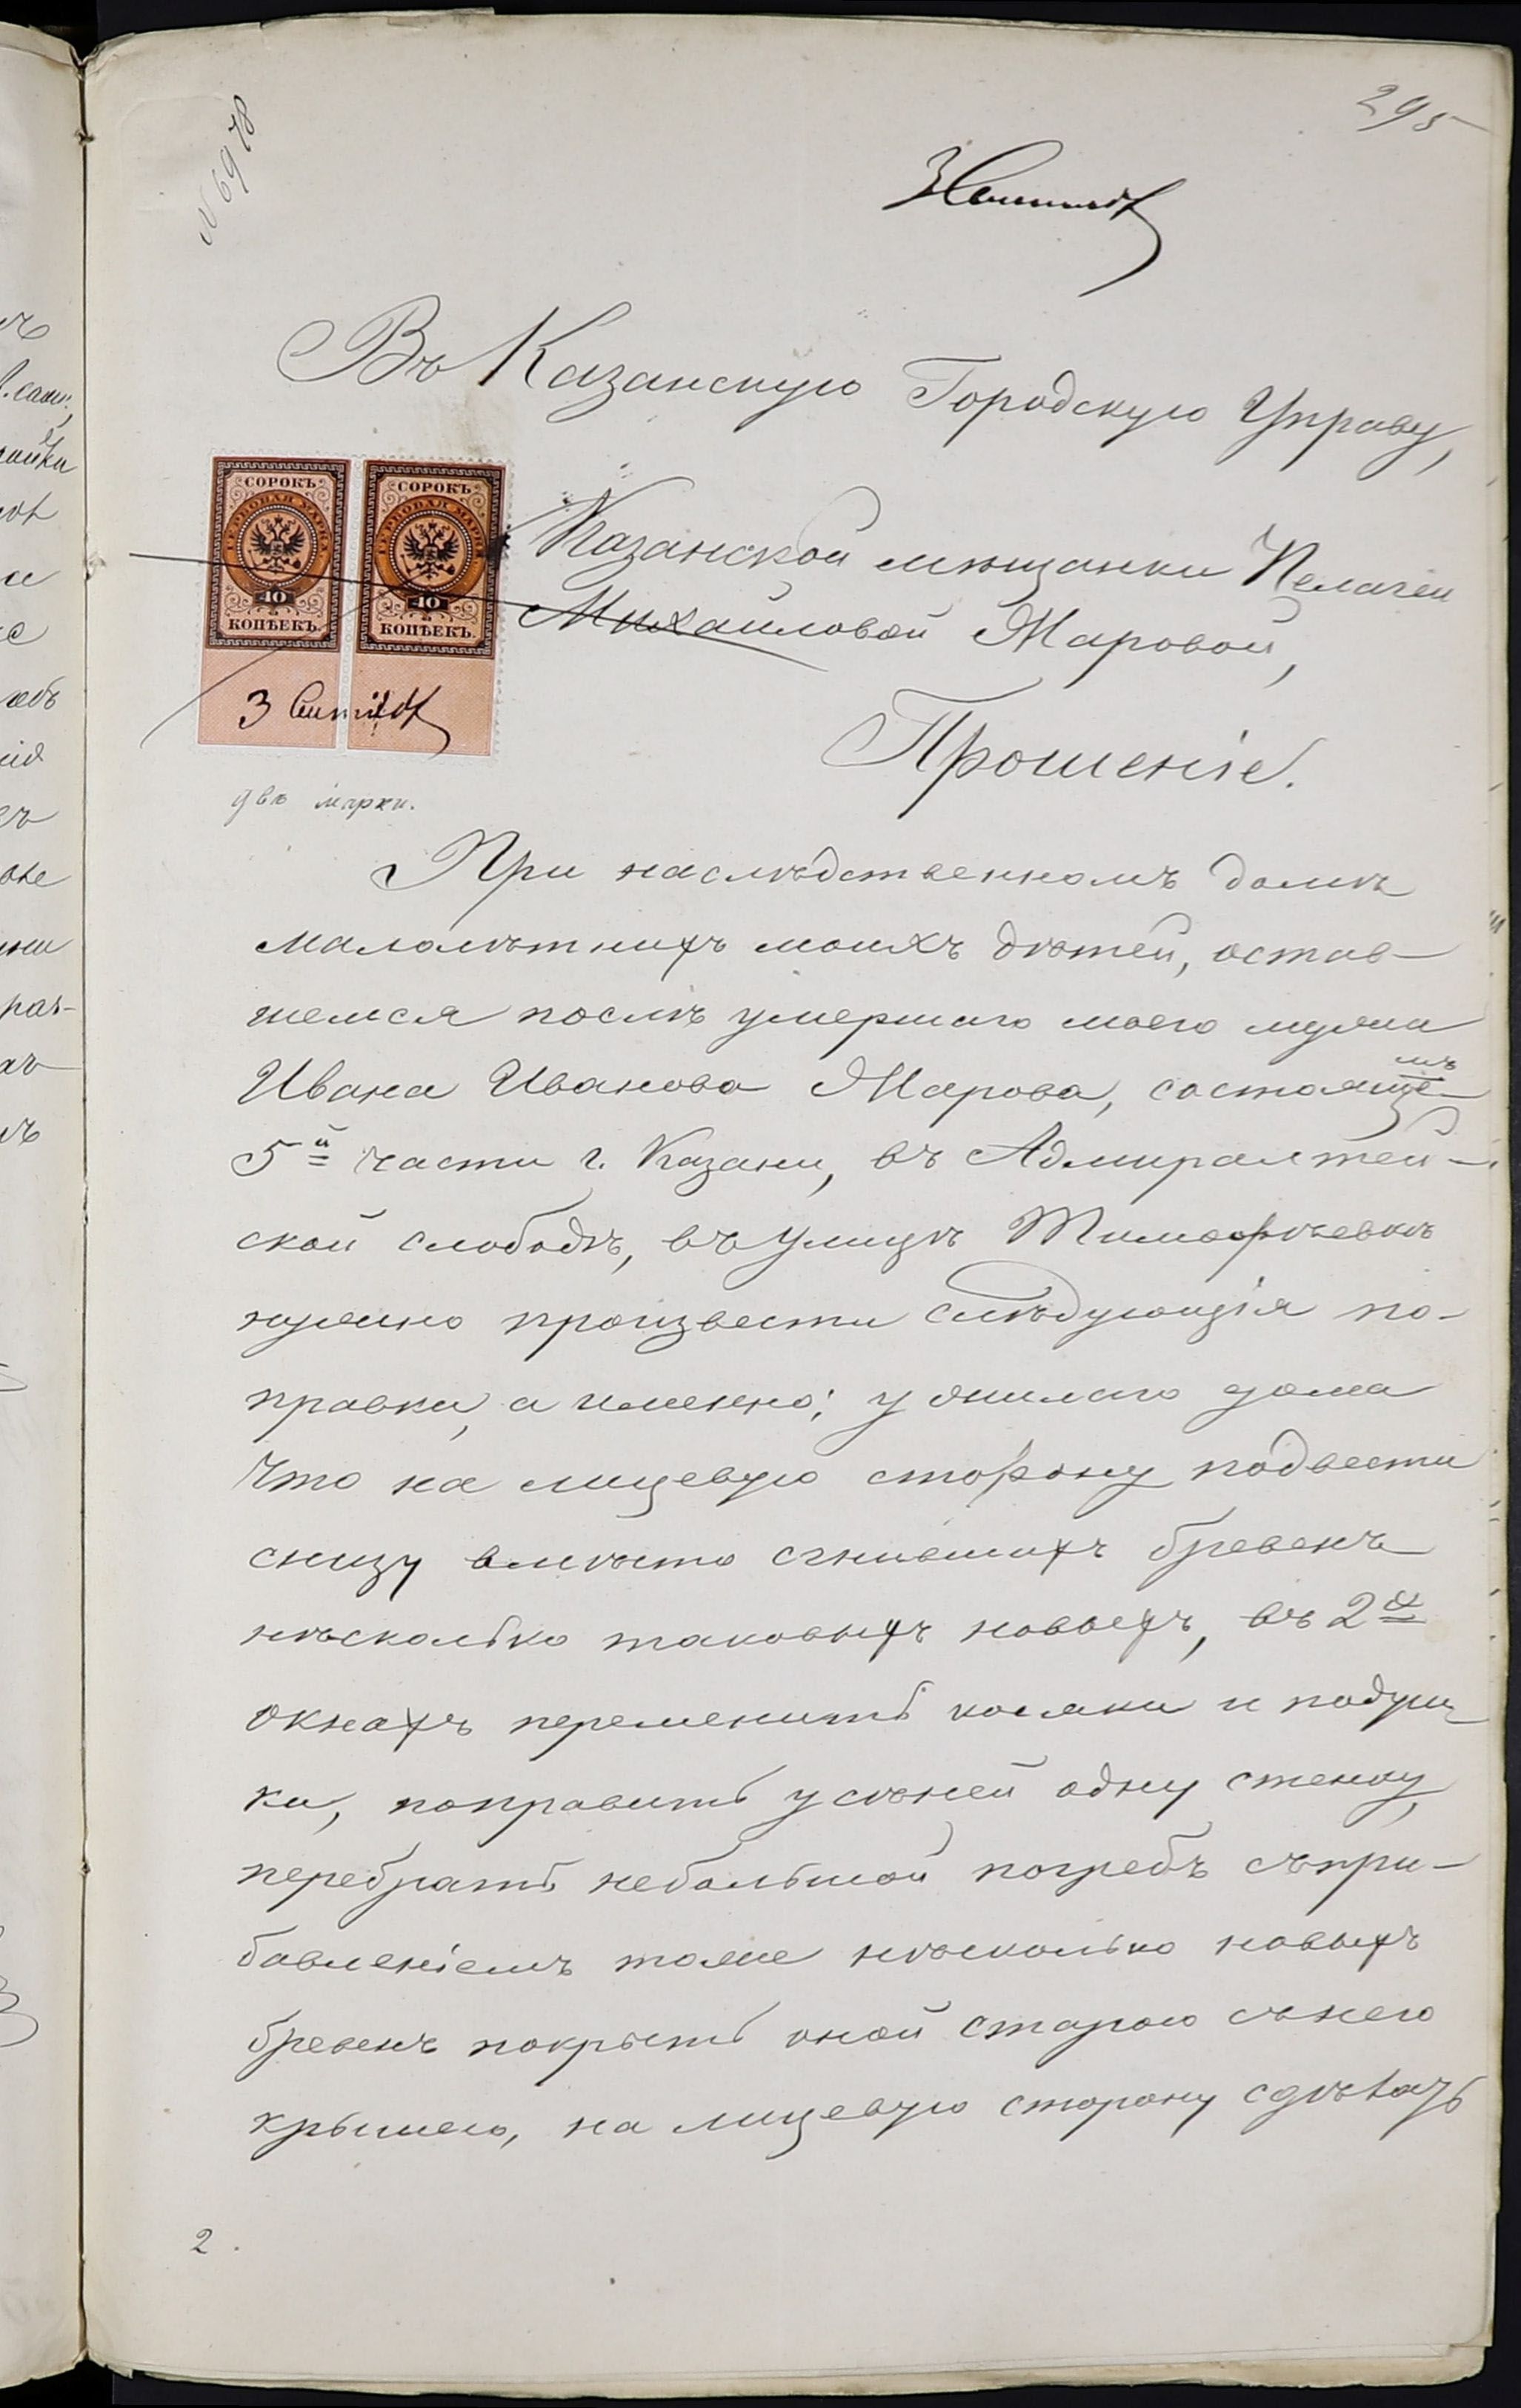 295
N 6978
3 Сентября
Въ Казанскую Городскую Управу,
Казанской мѣщанки Пелагеи
Михайловой Маровой,
Прошеніе.
СОРОКЪ
ГЕРБОВАЯ МАРКА
40
КОПѢЕКЪ.
СОРОКЪ
ГЕРБОВАЯ МАРКА
40
КОПѢЕКЪ.
3 Сентября
двѣ марки.
При наслѣдственномъ домѣ
малолѣтнихъ моихъ дѣтей, остав-
шемся послѣ умершаго моего мужа
Ивана Иванова Марова, состояще-
мъ
5й части г. Казани, въ Адмиралтей-
ской слободѣ, въ улицѣ Тимофѣевкѣ
нужно произвести слѣдующія по-
правки, а именно: у жилаго дома
что на лицевую сторону подвести
снизу вмѣсто сгнившихъ бревенъ
нѣсколько таковыхъ новыхъ, въ 2х
окнахъ переменить косяки и подуш
ки, поправить у сѣней одну стенку,
перебрать небольшой погребъ съ при-
бавленіемъ тоже нѣсколько новыхъ
бревенъ покрыть оной старою съ него
крышею, на лицевую сторону сдѣлать
2.